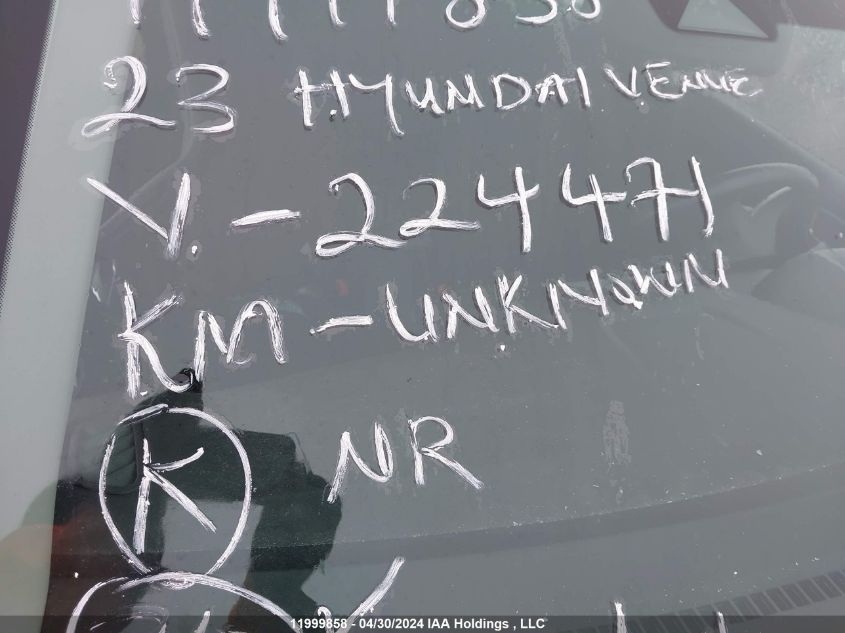 23 HYUNDAI VENUE
V. - 224471
KM - UNKNOWN
K NR
11999858 - 04/30/2024 IAA Holdings , LLC